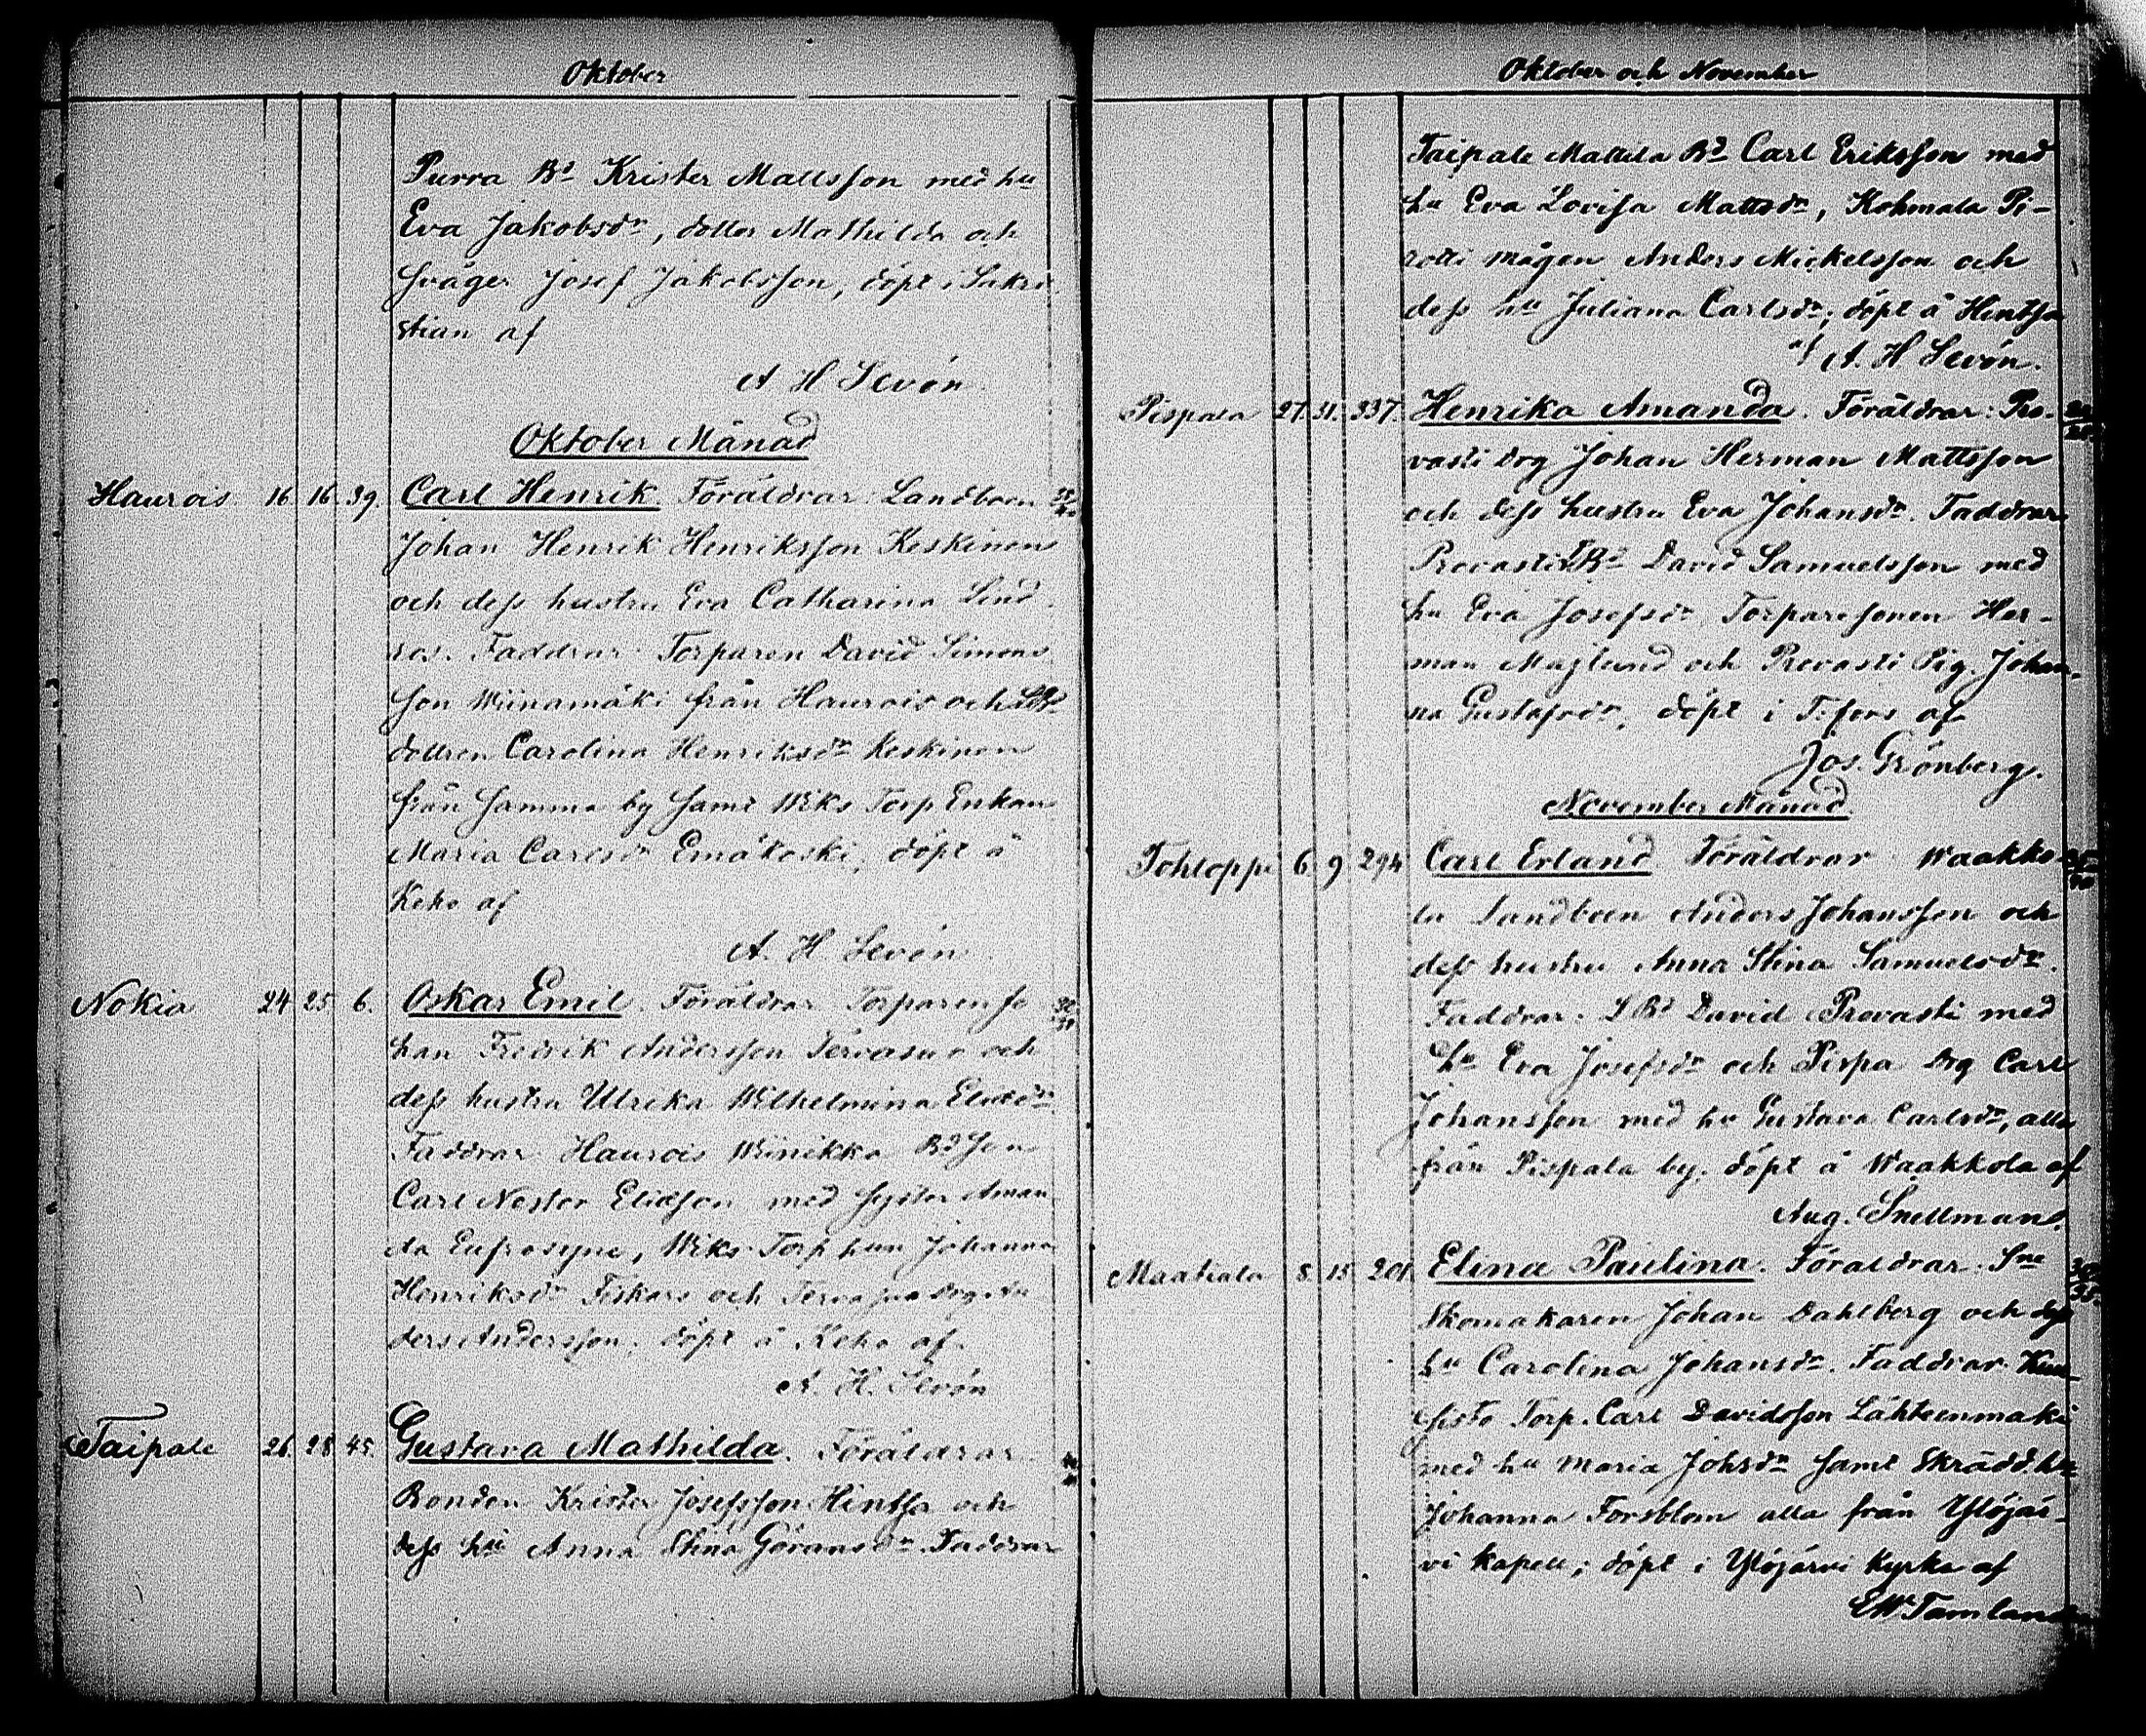 Oktober
Purra Bd Krister Mattsson med hu
Eva Jakobsdr, dotter Mathilda och
Svåger Josef Jakobsson, döpt i Sakri
stian af
A H Levón
Oktober Månad
Haurois 16. 16. 39. Carl Henrik. Föräldrar: Landboen
Johan Henrik Henriksson Keskinen
och dess hustru Eva Catharina Lind
ros. Faddrar: Torparen David Simons
son Wiinamäki från Haurois och
dottren Carolina Henriksdr Keskinen
från Samma by Samt Wiks Torp Enkan
Maria Carlsdr Emäkoski, döpt å
Keho af
A. H Levón
Nokia 24 25 6. Oskar Emil. Föräldrar Torparen Jo
han Fredrik Andersson Tervasuo och
dess hustru Ulrika Wilhelmina Eliædr
Faddrar Haurois Wiinikka Bd Son
Carl Nestor Eliæson med Syster Aman
da Eufrosyne, Wiks Torp hun Johanna
Henriksdr Fiskars och Drg An
ders Andersson, döpt å Keho af
A. H. Levón
Taipale 26. 28 45. Gustava Mathilda. Föräldrar
Bonden Krister Josefsson Hintsa och
dess hu Anna Stina Göransdr. Faddrar
Oktober och November
Taipale Mattila Bd Carl Eriksson med
hu Eva Lovisa Mattsdr, Kohmala Pi-
rotti mågen Anders Mickelsson och
dess hu Juliana Carlsdr; döpt å Hintsa
af A. H Levón.
Pispala 27. 31. 337. Henrika Amanda. Föräldrar: Pro-
vasti Drg Johan Herman Mattsson
och dess hustru Eva Johansdr. Faddrar
Provasti LBd David Samuelsson med
hu Eva Josefsdr, Torparesonen Her-
man Majlund och Provasti Pig. Johan-
na Gustafsdr, döpt i T:fors af
Jos. Grönberg.
November Månad.
Tohloppi 6 9 294 Carl Erland Föräldrar Waakko-
la Landboen Anders Johansson och
dess hustru Anna Stina Samuelsdr.
Faddrar: LBd David Provasti med
hu Eva Josefsdr och Pispa Drg Carl
Johansson med hu Gustava Carlsdr, alla
från Pispala by; döpt å Waakkola af
Aug. Snellman.
Maatiala 8. 15. 201 Elina Paulina. Föräldrar: Sne
Skomakaren Johan Dahlberg och dess
hu Carolina Johansdr. Faddrar: Kuu-
sisto Torp. Carl Davidsson Lähteenmäki
med hu Maria Johsdr Samt Skrädd. hu
Johanna Forsblom alla från Ylöjär-
vi Kapell; döpt i Ylöjärvi Kyrka af